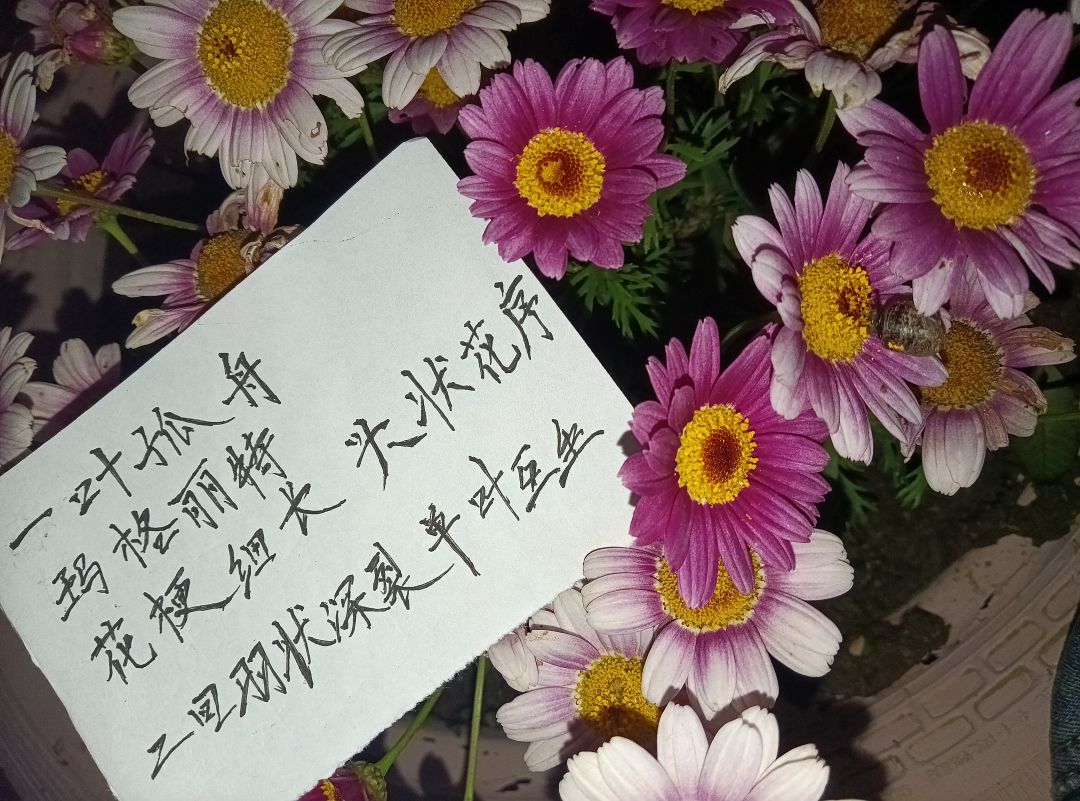 一叶孤舟
玛格丽特
花梗细长 头状花序
二回羽状深裂单叶互生